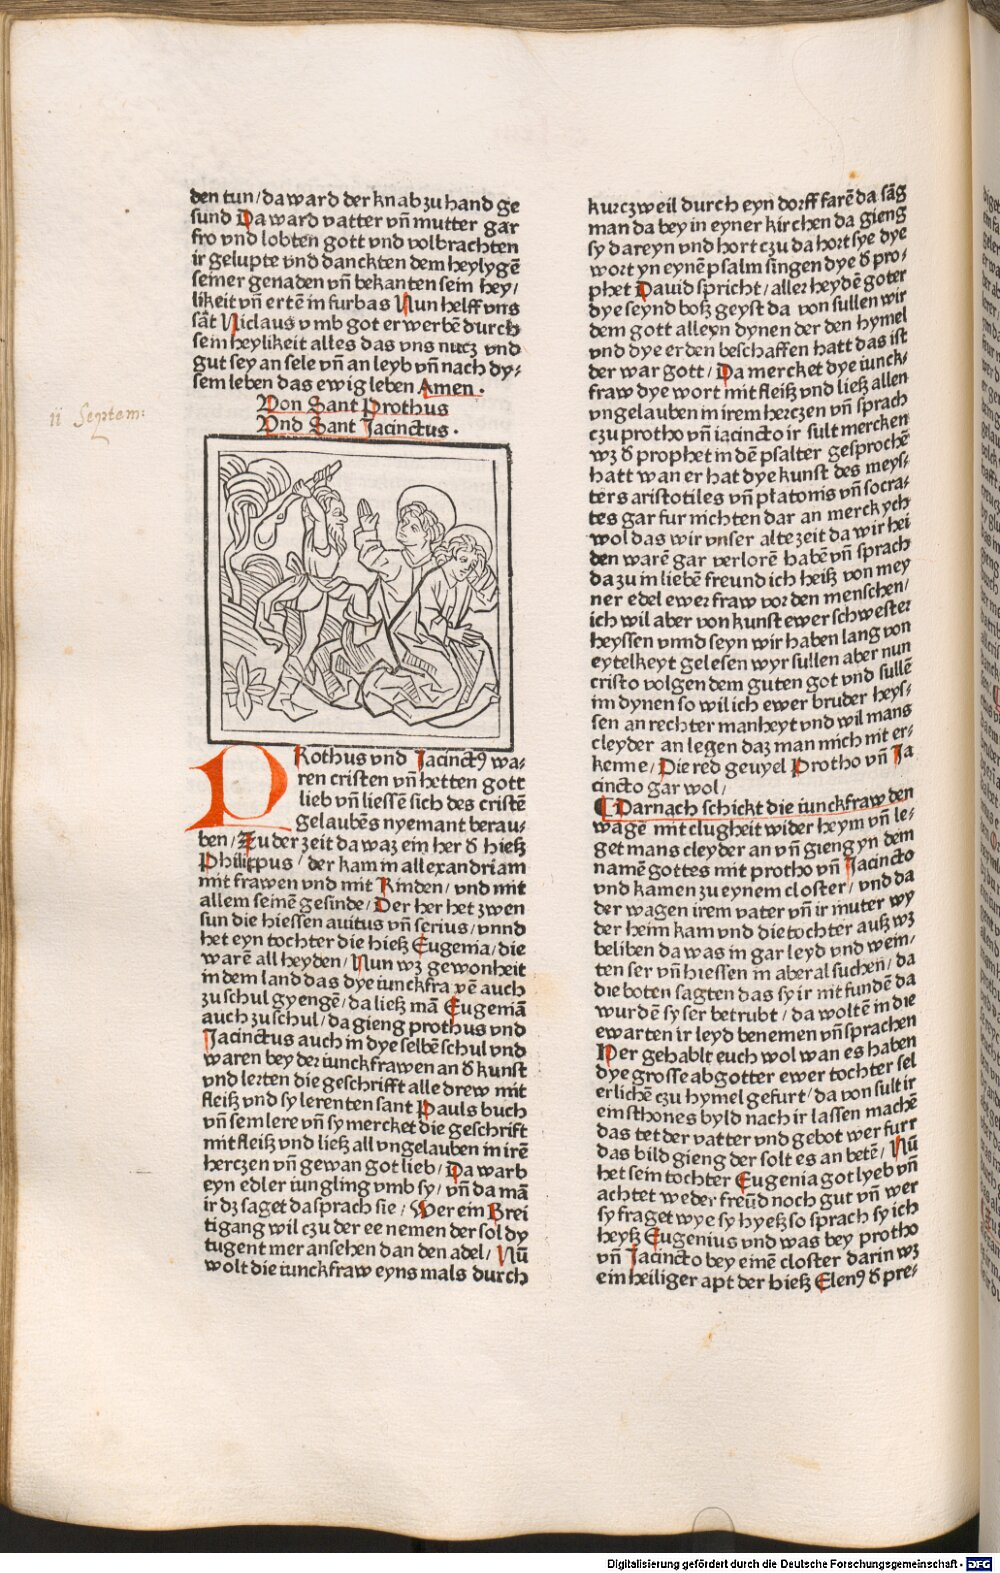 den tun/da ward der knab zu hand ge
sund Da ward vatter vn̄ mutter gar
fro vnd lobten gott vnd volbrachten
ir gelupte vnd danckten dem heylygē
seiner genaden vn̄ bekanten sein hey/
likeit vn̄ ertē in furbas Nun helff vns
sāt Niclaus vmb got er werbē durch
sein heylikeit alles das vns nucz vnd
gut sey an sele vn̄ an leyb vn̄ nach dy-
sem leben das ewig leben Amen .
Von Sant Prothus
Vnd Sant Jacinctus .
ii Septem:
PRothus vnd Jacinctꝰ wa-
ren cristen vn̄ hetten gott
lieb vn̄ liessē sich des cristē
gelaubēs nyemant berau-
ben/Zu der zeit da waz ein her ď hieß
Philippus/der kam in allexandriam
mit frawen vnd mit Kinden/vnd mit
allem seinē gesinde/Der her het zwen
sun die hiessen auitus vn̄ serius/vnnd
het eyn tochter die hieß Eugenia/die
warē all heyden/Nun wz gewonheit
in dem land das dye iunckfra vē auch
zu schul gyengē/da ließ mā Eugeniā
auch zu schul/da gieng prothus vnd
Jacinctus auch in dye selbē schul vnd
waren bey der iunckfrawen an ď kunst
vnd lerten die geschrifft alle drew mit
fleiß vnd sy lerenten sant Pauls buch
vn̄ sem lere vn̄ sy mercket die geschrift
mit fleiß vnd ließ all vngelauben in irē
herczen vn̄ gewan got lieb/Da warb
eyn edler iungling vmb sy/vn̄ da mā
ir dz saget da sprach sie/Wer ein Brei
tigang wil czu der ee nemen der sol dy
tugent mer ansehen dan den adel/Nū
wolt die iunckfraw eyns mals durch
kurczweil durch eyn dorff farē da sāg
man da bey in eyner kirchen da gieng
sy dareyn vnd hort czu da hort sye dye
wort yn eynē psalm singen dye ď pro-
phet Dauid spricht/aller heydē goter
dye seynd boß geyst da von sullen wir
dem gott alleyn dynen der den hymel
vnd dye erden beschaffen hatt das ist
der war gott/Da mercket dye iunck-
fraw dye wort mit fleiß vnd ließ allen
vngelauben in irem herczen vn̄ sprach
czu protho vn̄ iacincto ir sult mercken
wz ď prophet in dē psalter gesprochē
hatt wan er hat dye kunst des meys-
ters aristotiles vn̄ platonis vn̄ socra-
tes gar fur nichten dar an merck ych
wol das wir vnser alte zeit da wir hei
den warē gar verlorē habē vn̄ sprach
da zu in liebē freund ich heiß von mey
ner edel ewer fraw vor den menschen/
ich wil aber von kunst ewer schwester
heyssen vnnd seyn wir haben lang von
eytelkeyt gelesen wyr sullen aber nun
cristo volgen dem guten got vnd sullē
im dynen so wil ich ewer bruder heys-
sen an rechter manheyt vnd wil mans
cleyder an legen daz man mich nit er-
kenne/Die red geuyel Protho vn̄ Ja
cincto gar wol/
¶ Darnach schickt die iunckfraw den
wagē mit clugheit wider heym vn̄ le-
get mans cleyder an vn̄ gieng yn dem
namē gottes mit protho vn̄ Jacincto
vnd kamen zu eynem closter/vnd da
der wagen irem vater vn̄ ir muter wy
der heim kam vnd die tochter auß wz
beliben da was in gar leyd vnd wein/
ten ser vn̄ hiessen in aberal suchen/da
die boten sagten das sy ir nit fundē da
wurdē sy ser betrubt/da woltē in die
ewarten ir leyd benemen vn̄ sprachen
Der gehabt euch wol wan es haben
dye grosse abgotter ewer tochter sel
erlichē czu hymel gefurt/da von sult ir
ein sthones byld nach ir lassen machē
das tet der vatter vnd gebot wer furr
das bild gieng der solt es an betē/Nū
het sein tochter Eugenia got lyeb vn̄
achtet weder freūd noch gut vn̄ wer
sy fraget wye sy hyeß so sprach sy ich
heyß Eugenius vnd was bey protho
vn̄ Jacincto bey einē closter darin wz
ein heiliger apt der hieß Elenꝰ ď pre-
Digitalisierung gefördert durch die Deutsche Forschungsgemeinschaft - DFG